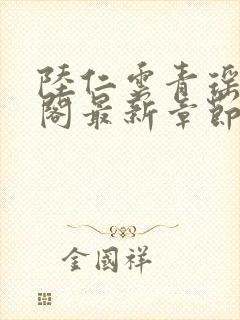 陸仁雲青瑶
閣最新章節
金國祥